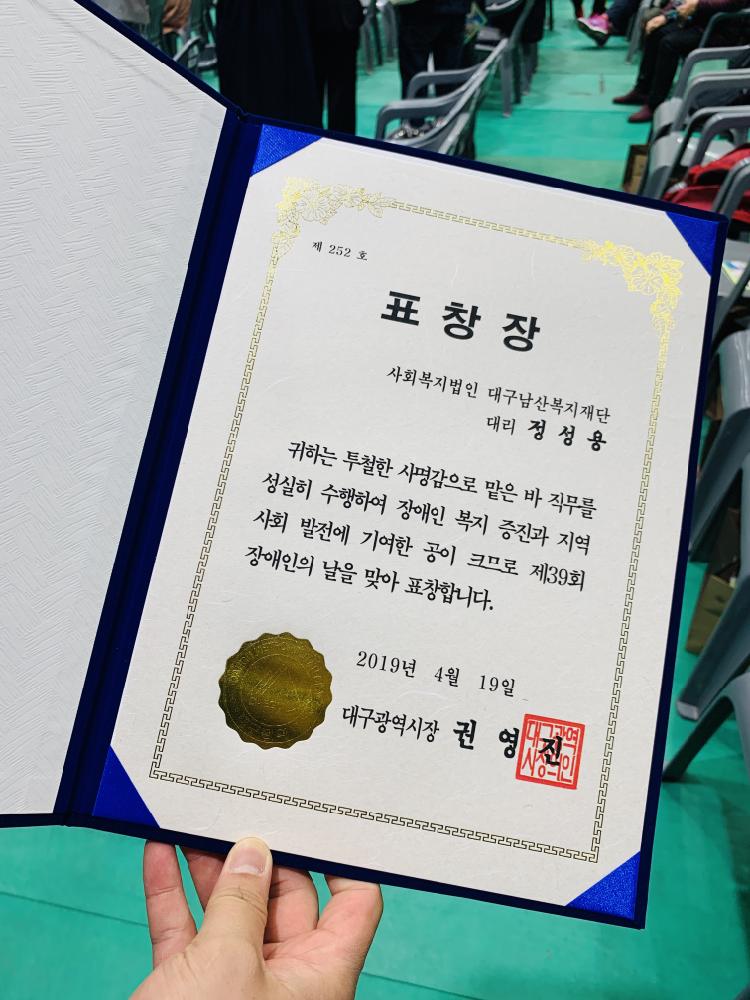 제 252 호
표 창 장
사회복지법인 대구남산복지재단
대리 정 성 용
귀하는 투철한 사명감으로 맡은 바 직무를
성실히 수행하여 장애인 복지 증진과 지역
사회 발전에 기여한 공이 크므로 제39회
장애인의 날을 맞아 표창합니다.
2019년 4월 19일
대구광역시장 권 영 진
대구광역
시장의인